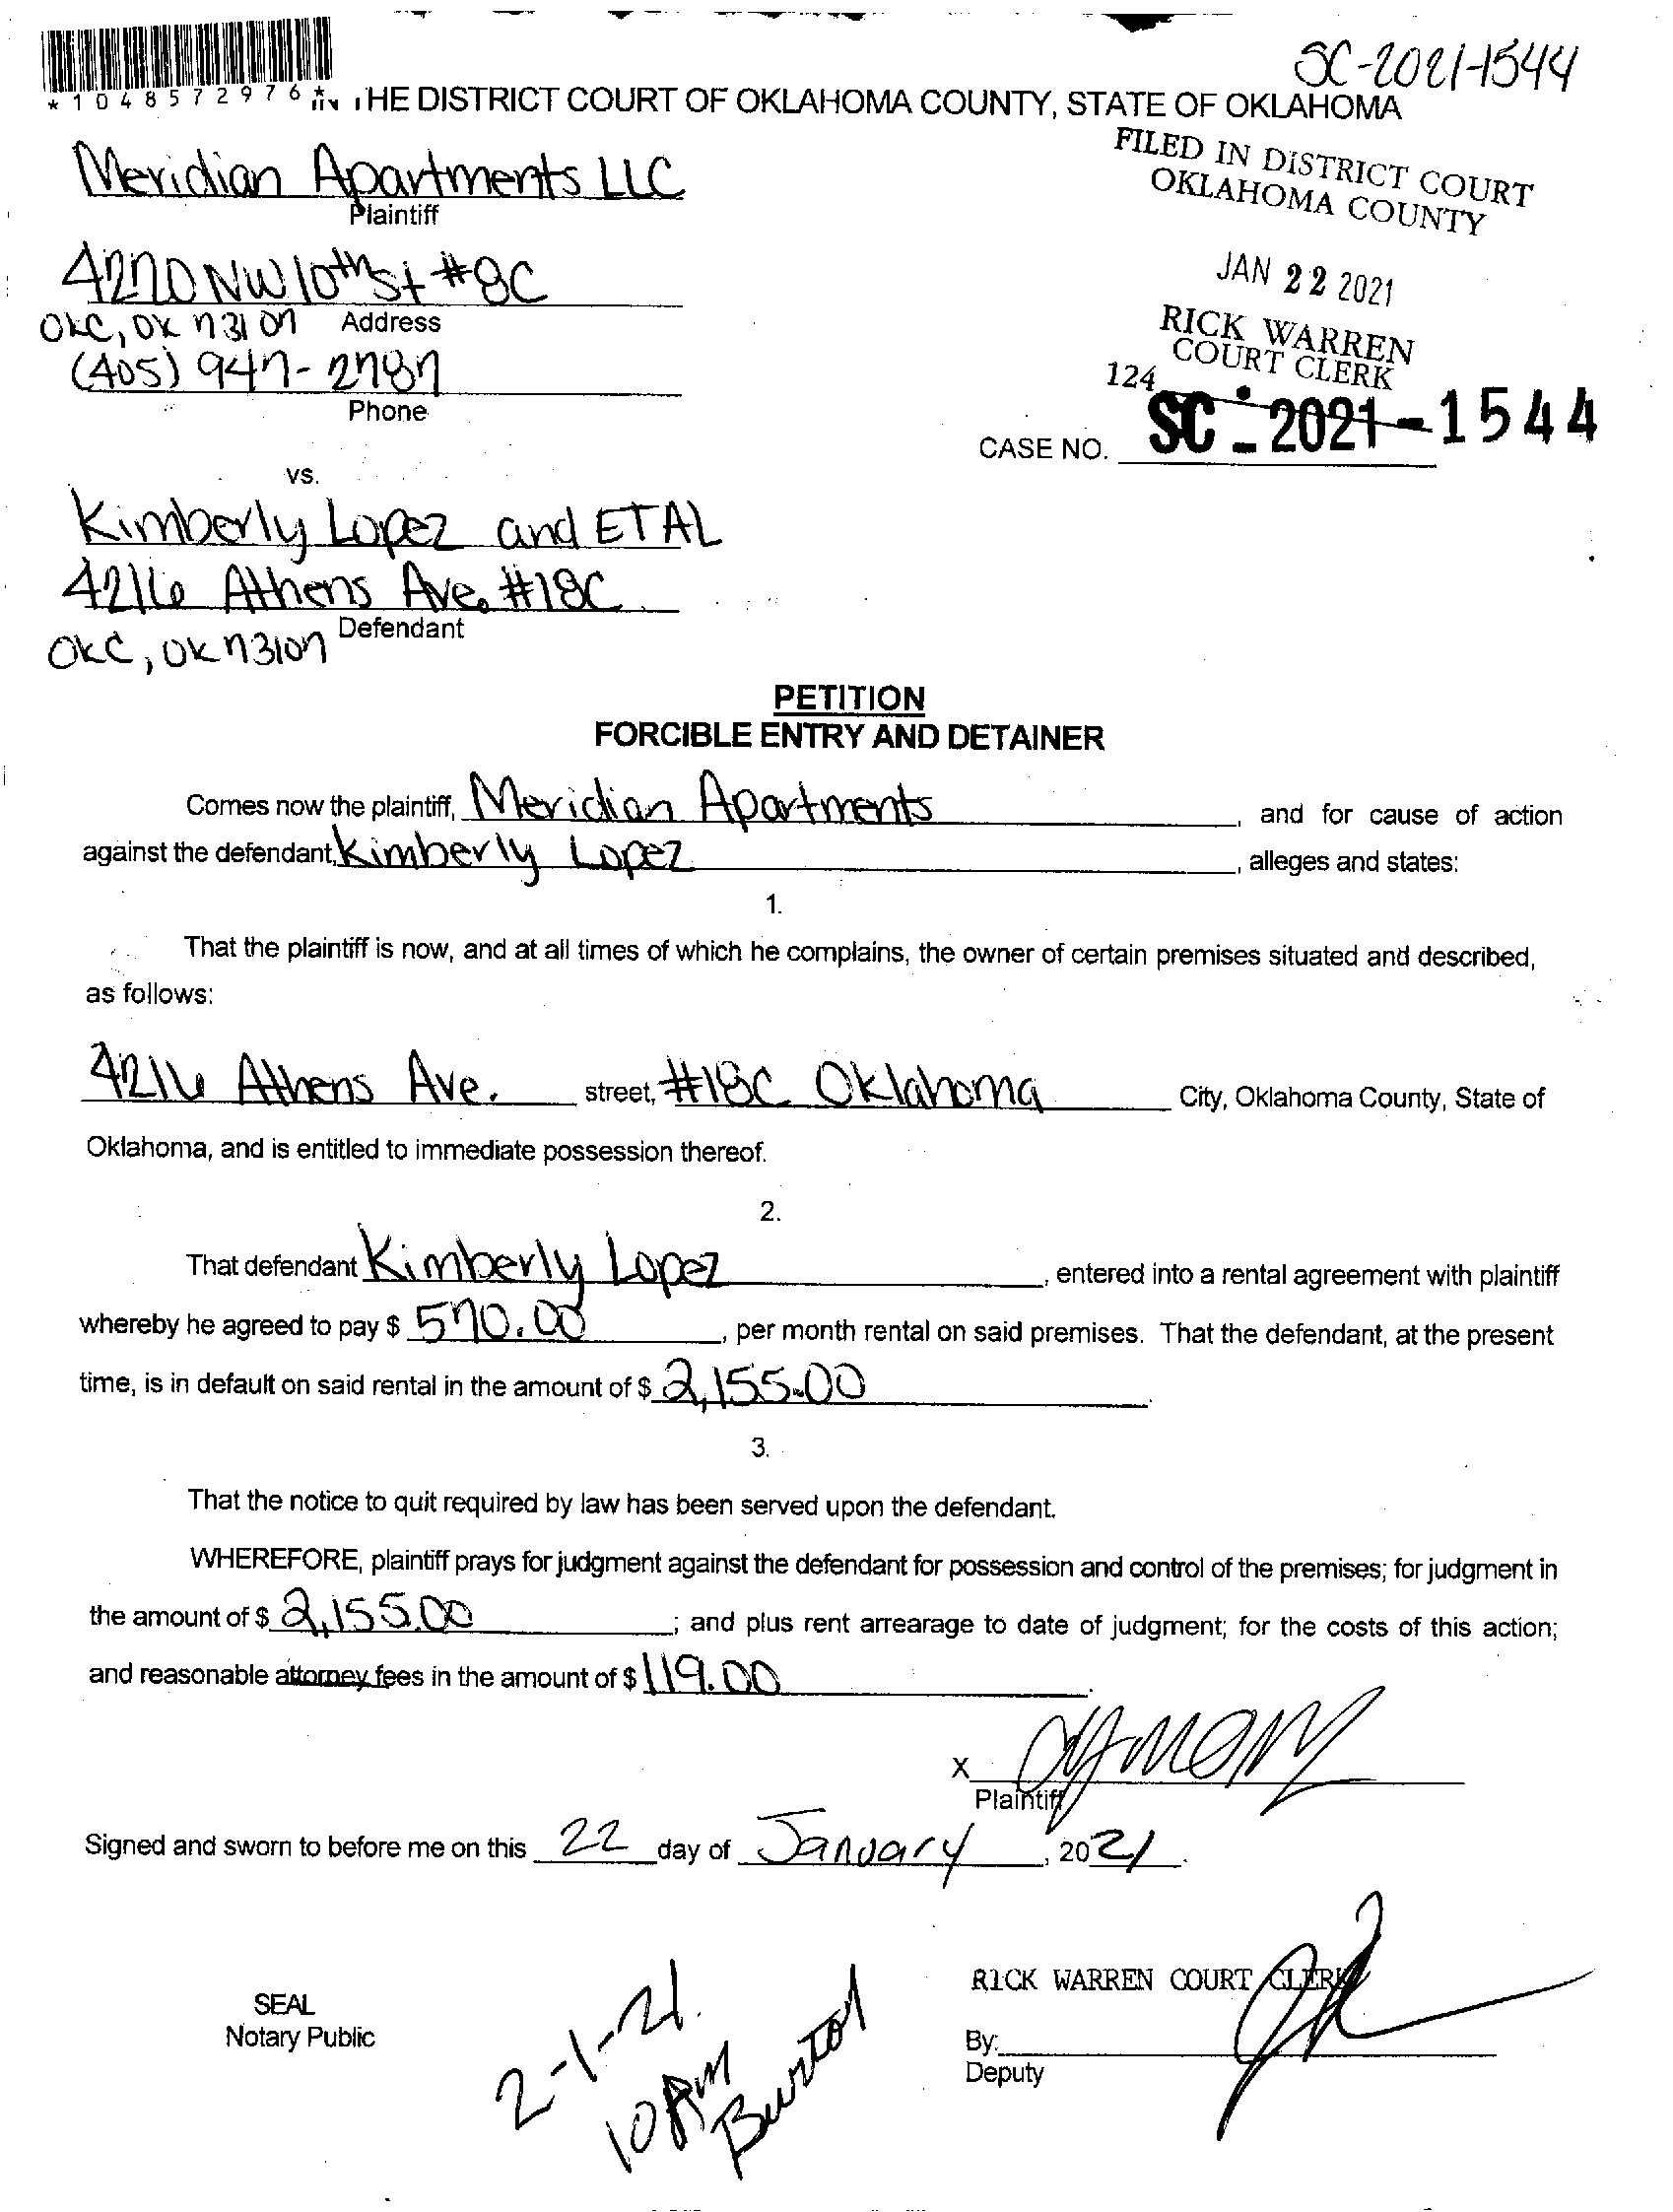 SC-2021-1544
*1048572976*
IN THE DISTRICT COURT OF OKLAHOMA COUNTY, STATE OF OKLAHOMA
Meridian Apartments LLC
Plaintiff
4220 NW 10th St #8C
Address
OKC, OK 73107
(405) 947-2787
Phone
FILED IN DISTRICT COURT
OKLAHOMA COUNTY
JAN 22 2021
RICK WARREN
COURT CLERK
124
CASE NO. SC-2021-1544
vs.
Kimberly Lopez and ETAL
4216 Athens Ave. #18C
Defendant
OKC, OK 73107
PETITION
FORCIBLE ENTRY AND DETAINER
Comes now the plaintiff, Meridian Apartments, and for cause of action
against the defendant, Kimberly Lopez, alleges and states:
1.
That the plaintiff is now, and at all times of which he complains, the owner of certain premises situated and described,
as follows:
4216 Athens Ave. street, #18C Oklahoma City, Oklahoma County, State of
Oklahoma, and is entitled to immediate possession thereof.
2.
That defendant Kimberly Lopez, entered into a rental agreement with plaintiff
whereby he agreed to pay $ 570.00, per month rental on said premises. That the defendant, at the present
time, is in default on said rental in the amount of $ 2,155.00.
3.
That the notice to quit required by law has been served upon the defendant.
WHEREFORE, plaintiff prays for judgment against the defendant for possession and control of the premises; for judgment in
the amount of $ 2,155.00; and plus rent arrearage to date of judgment; for the costs of this action;
and reasonable attorney fees in the amount of $ 119.00.
X
Plaintiff
Signed and sworn to before me on this 22 day of January, 2021.
RICK WARREN COURT CLERK
SEAL
Notary Public
By:
Deputy
2-1-21
10 AM
Burtol